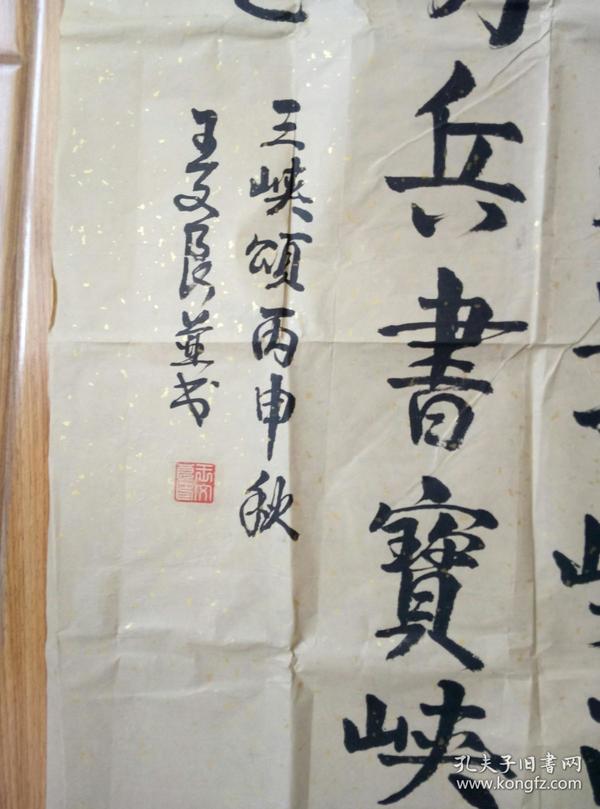 兵書寶峽
三峽頌丙申秋
王文良並书
孔夫子旧書网
www.kongfz.com